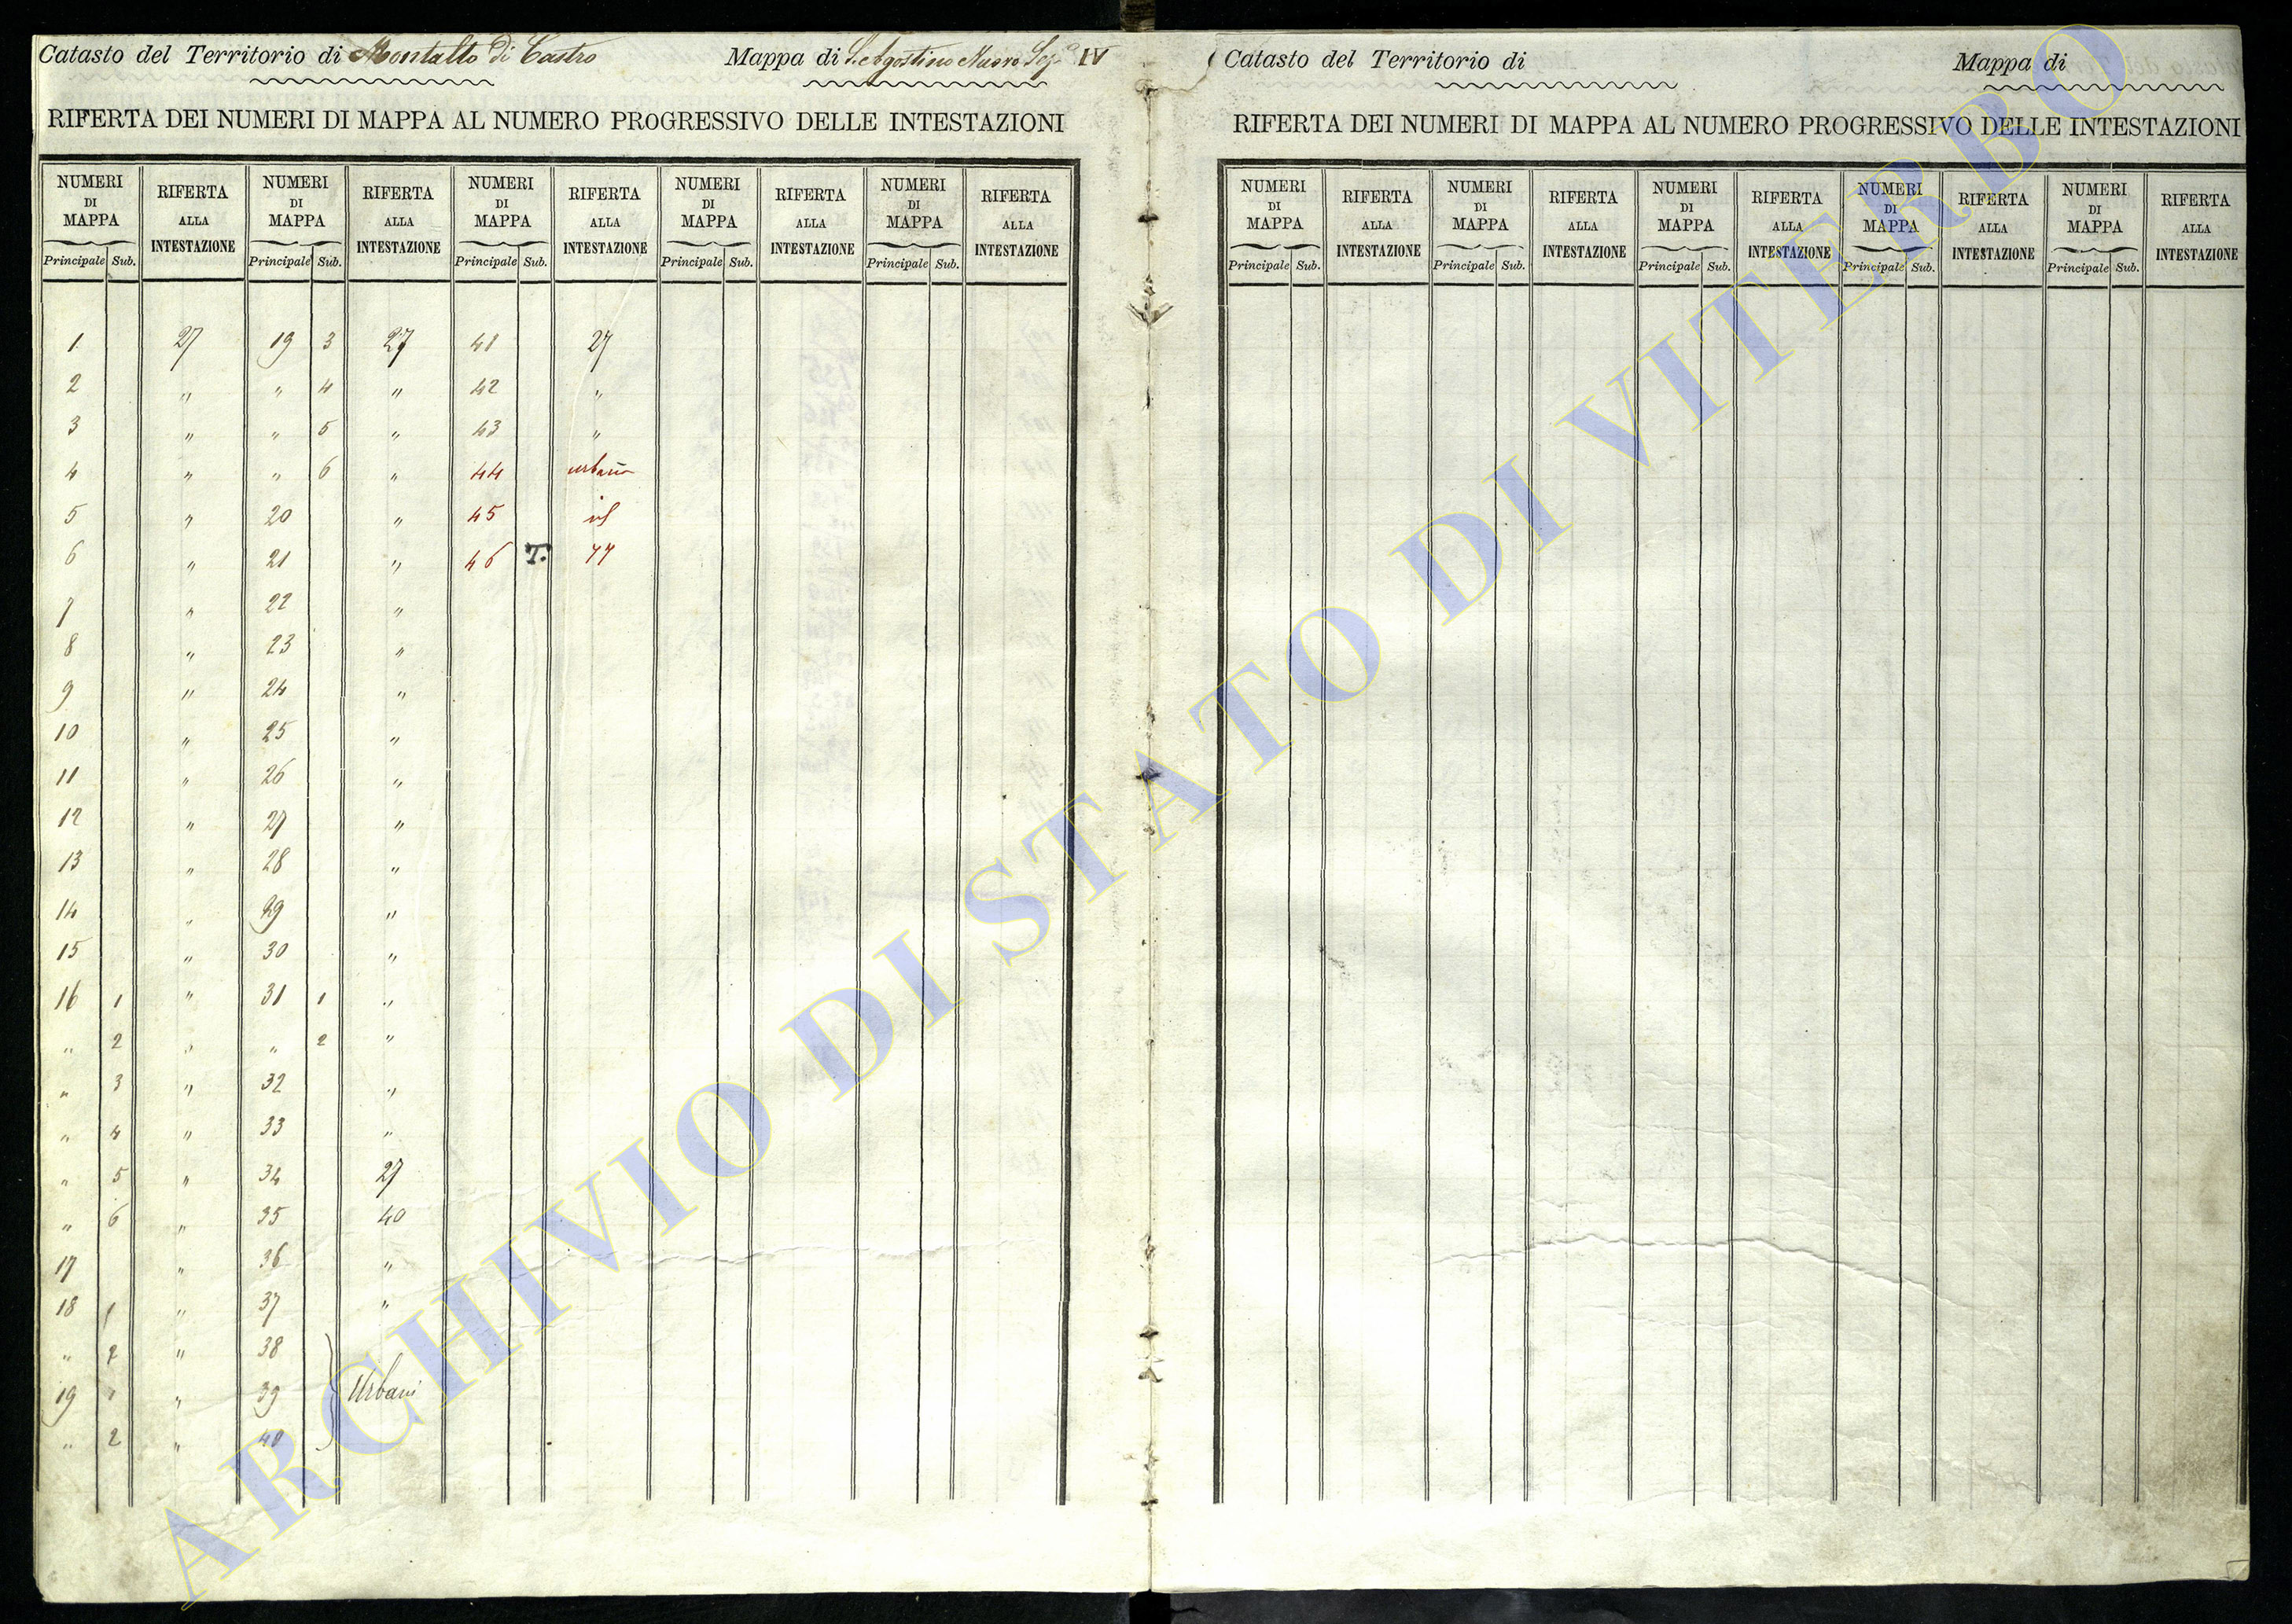 Catasto del Territorio di Montalto Di Castro Mappa di S. Agostino Nuovo Sez. IV
RIFERTA DEI NUMERI DI MAPPA AL NUMERO PROGRESSIVO DELLE INTESTAZIONI
NUMERI DI MAPPA RIFERTA ALLA INTESTAZIONE NUMERI DI MAPPA RIFERTA ALLA INTESTAZIONE NUMERI DI MAPPA RIFERTA ALLA INTESTAZIONE NUMERI DI MAPPA RIFERTA ALLA INTESTAZIONE NUMERI DI MAPPA RIFERTA ALLA INTESTAZIONE
Principale Sub. Principale Sub. Principale Sub. Principale Sub. Principale Sub.
1 27 19 3 27 41 27
2 " " 4 " 42 "
3 " " 5 " 43 "
4 " " 6 " 44 urbano
5 " 20 " 45 id
6 " 21 " 46 T. 77
7 " 22 "
8 " 23 "
9 " 24 "
10 " 25 "
11 " 26 "
12 " 27 "
13 " 28 "
14 " 29 "
15 " 30 "
16 1 " 31 1 "
" 2 " " 2 "
" 3 " 32 "
" 4 " 33 "
" 5 " 34 27
" 6 " 35 40
17 " 36 "
18 1 " 37 "
" 2 " 38
19 1 " 39 Urbani
" 2 " 40
Catasto del Territorio di Mappa di
RIFERTA DEI NUMERI DI MAPPA AL NUMERO PROGRESSIVO DELLE INTESTAZIONI
NUMERI DI MAPPA RIFERTA ALLA INTESTAZIONE NUMERI DI MAPPA RIFERTA ALLA INTESTAZIONE NUMERI DI MAPPA RIFERTA ALLA INTESTAZIONE NUMERI DI MAPPA RIFERTA ALLA INTESTAZIONE NUMERI DI MAPPA RIFERTA ALLA INTESTAZIONE
Principale Sub. Principale Sub. Principale Sub. Principale Sub. Principale Sub.
ARCHIVIO DI STATO DI VITERBO